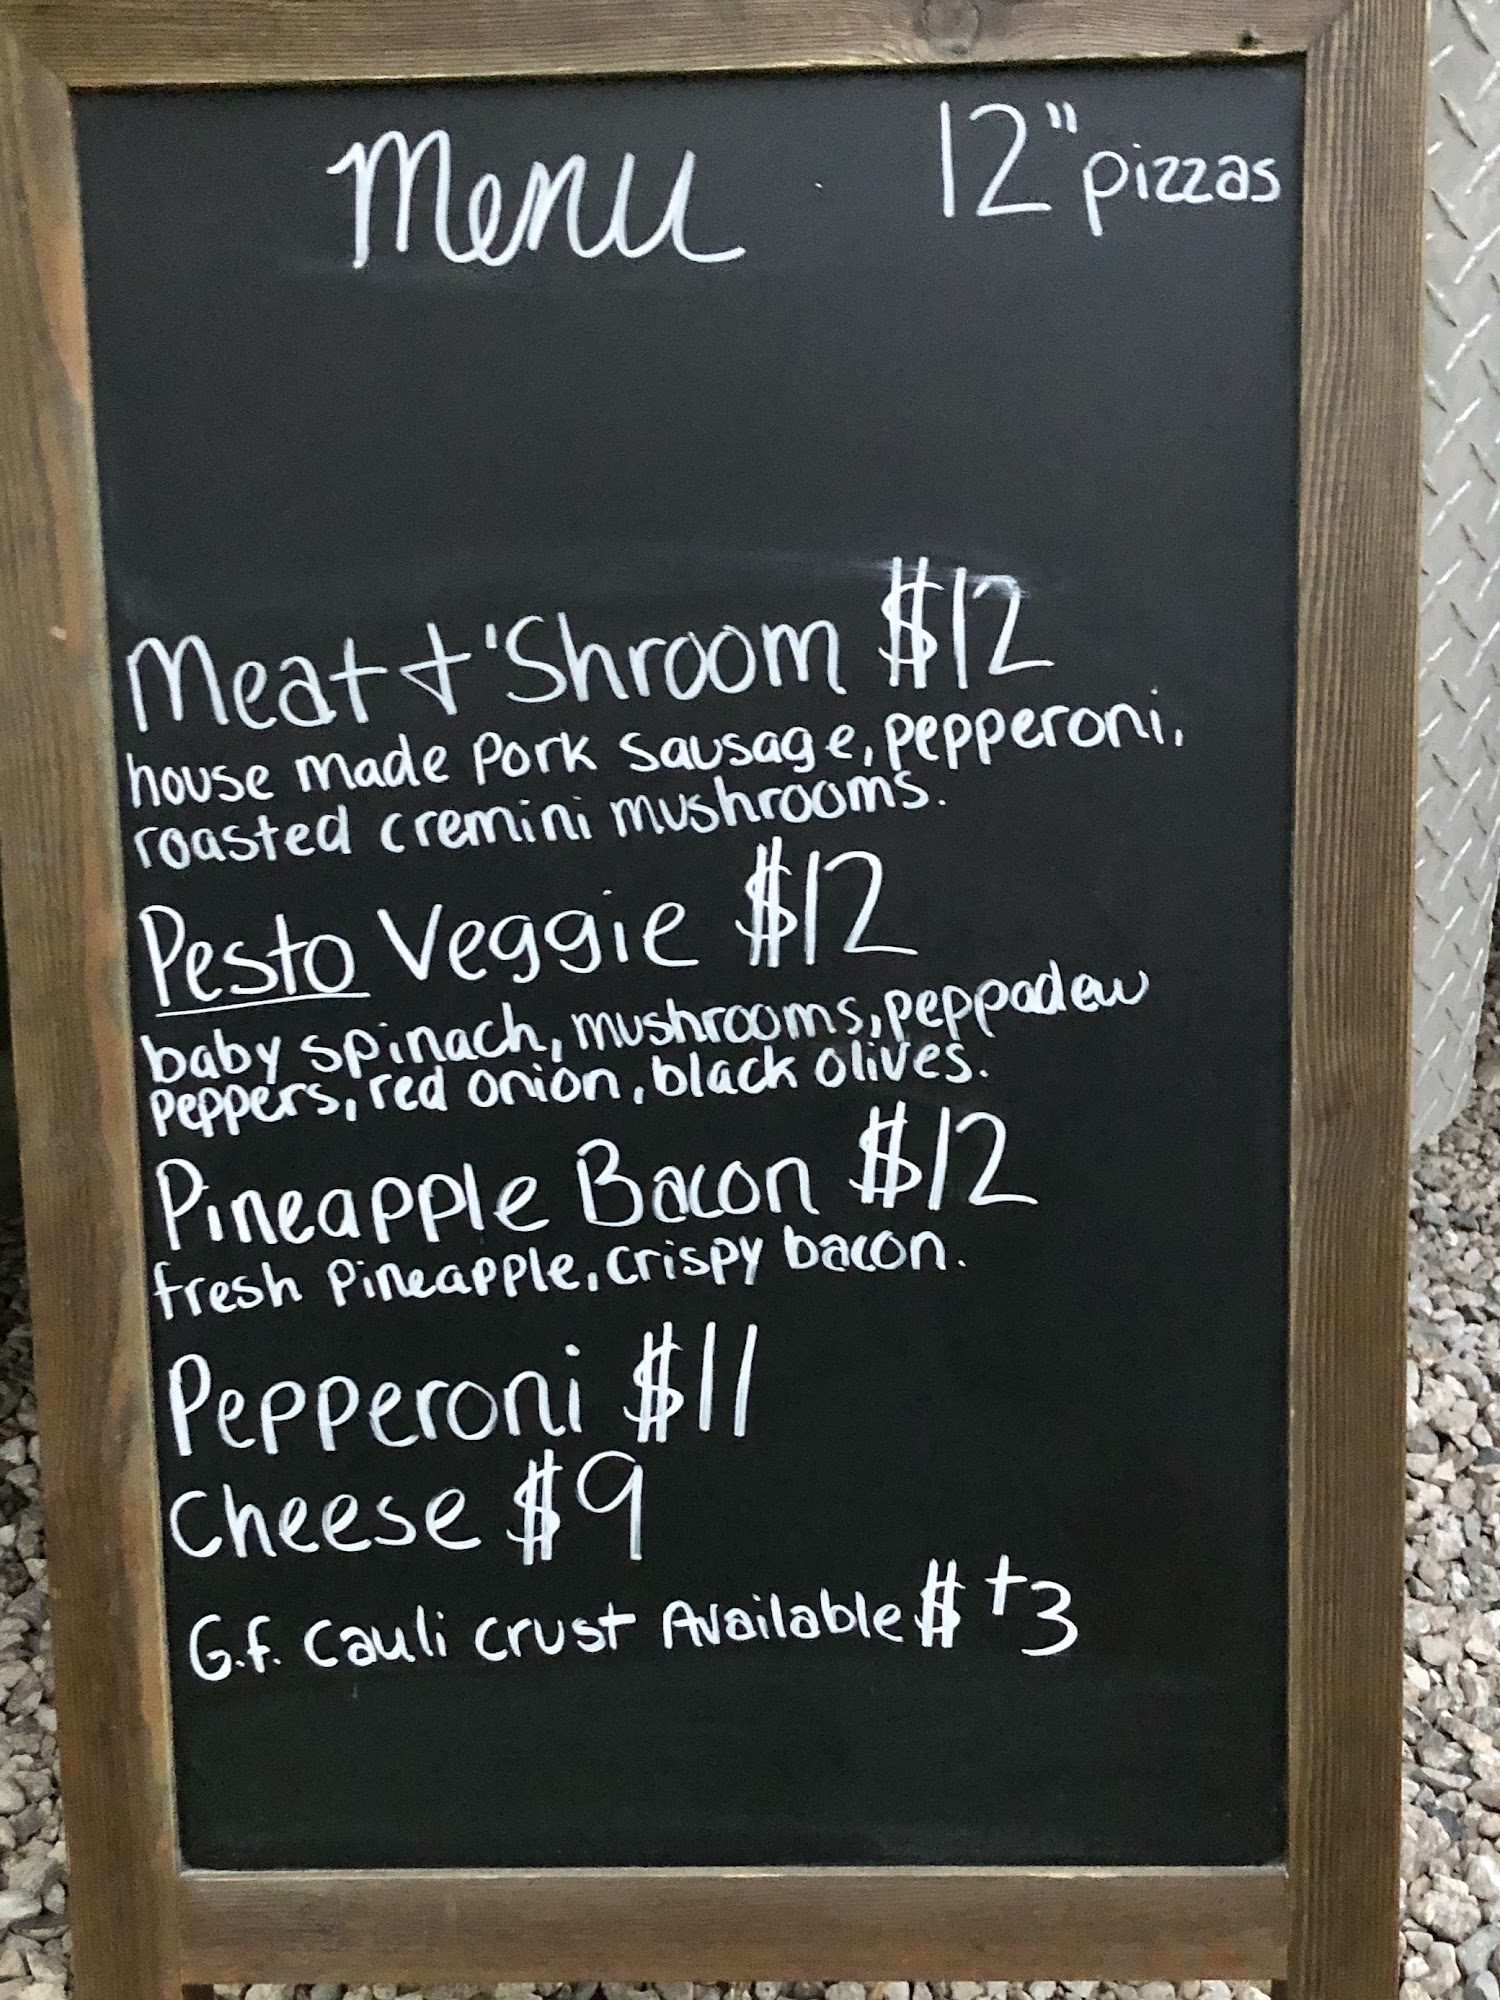 Menu
12" pizzas
Meat + 'Shroom $12
house made pork sausage, pepperoni,
roasted cremini mushrooms.
Pesto Veggie $12
baby spinach, mushrooms, peppadew
peppers, red onion, black olives.
Pineapple Bacon $12
fresh pineapple, crispy bacon.
Pepperoni $11
Cheese $9
G.f. Cauli crust Available $ +3